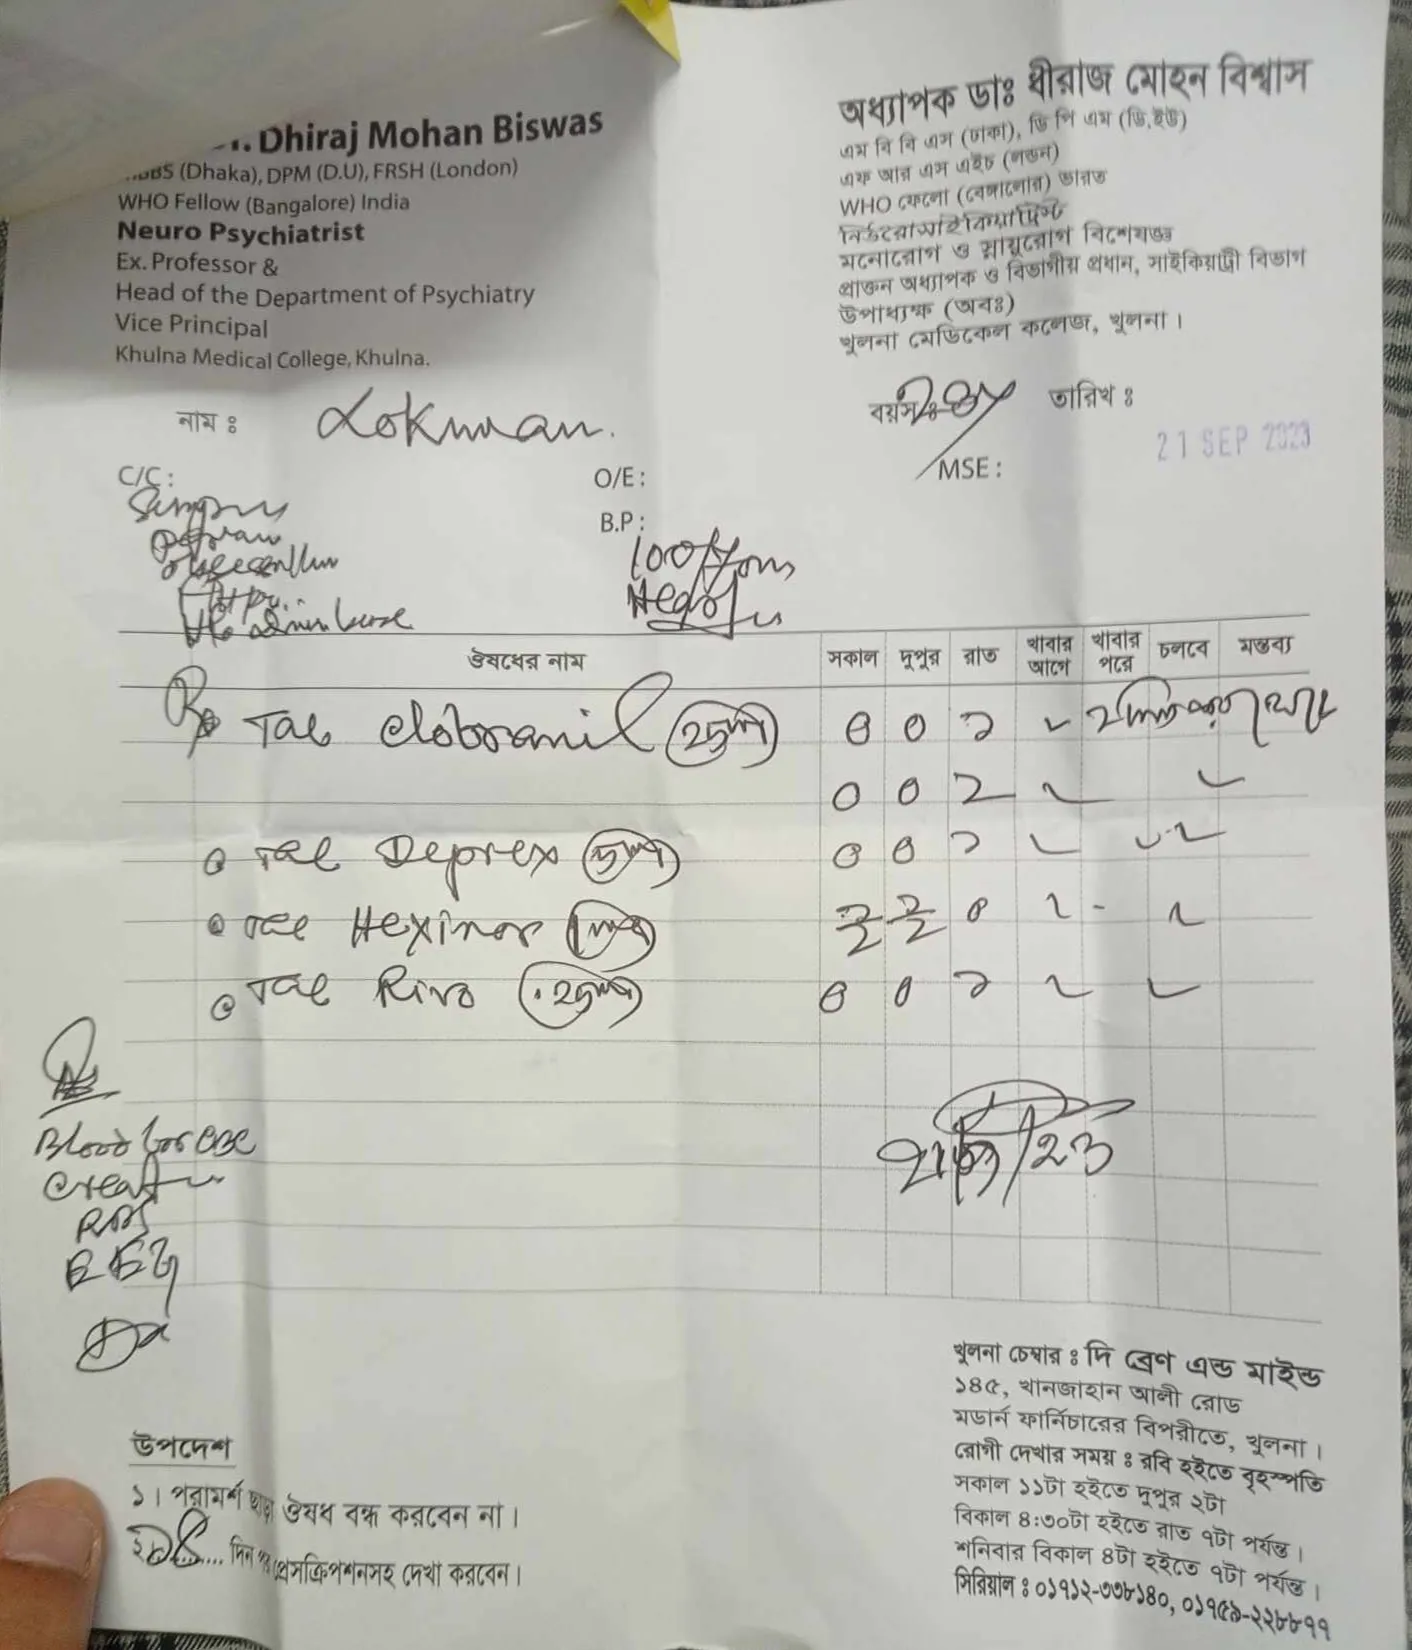 Dhiraj Mohan Biswas
(Dhaka), DPM (D.U), FRSH (London)
WHO Fellow (Bangalore) India
Neuro Psychiatrist
Ex. Professor &
Head of the Department of Psychiatry
Vice Principal
Khulna Medical College, Khulna.
অধ্যাপক ডাঃ ধীরাজ মোহন বিশ্বাস
এম বি বি এস (ঢাকা), ডি পি এম (ডি,ইউ)
এফ আর এস এইচ (লন্ডন)
WHO ফেলো (বেঙ্গালোর) ভারত
নিউরোসাইকিয়াট্রিস্ট
মনোরোগ ও স্নায়ুরোগ বিশেষজ্ঞ
প্রাক্তন অধ্যাপক ও বিভাগীয় প্রধান, সাইকিয়াট্রী বিভাগ
উপাধ্যক্ষ (অবঃ)
খুলনা মেডিকেল কলেজ, খুলনা।
নাম ঃ Lokman. বয়স ঃ তারিখ ঃ
21 SEP 2023
C/C: O/E: MSE:
B.P:
ঔষধের নাম সকাল দুপুর রাত খাবার আগে খাবার পরে চলবে মন্তব্য
Tab Clobranil (25mg) 0 0 ১
0 0 ২
Tab Deprex (5mg) 0 0 ১
Tab Hexinor (5mg) ১/২ ১/২ 0
Tab Rivo (.25mg) 0 0 ১
Blood for CBC
Creat
RBS
ECG
21/9/23
উপদেশ
১। পরামর্শ ছাড়া ঔষধ বন্ধ করবেন না।
দিন পর প্রেসক্রিপশনসহ দেখা করবেন।
খুলনা চেম্বার ঃ দি ব্রেণ এন্ড মাইন্ড
১৪৫, খানজাহান আলী রোড
মডার্ন ফার্নিচারের বিপরীতে, খুলনা।
রোগী দেখার সময় ঃ রবি হইতে বৃহস্পতি
সকাল ১১টা হইতে দুপুর ২টা
বিকাল ৪:৩০টা হইতে রাত ৭টা পর্যন্ত।
শনিবার বিকাল ৪টা হইতে ৭টা পর্যন্ত।
সিরিয়াল ঃ ০১৭১২-৩৩৮১৪০, ০১৭৫৯-২২৮৮৭৭